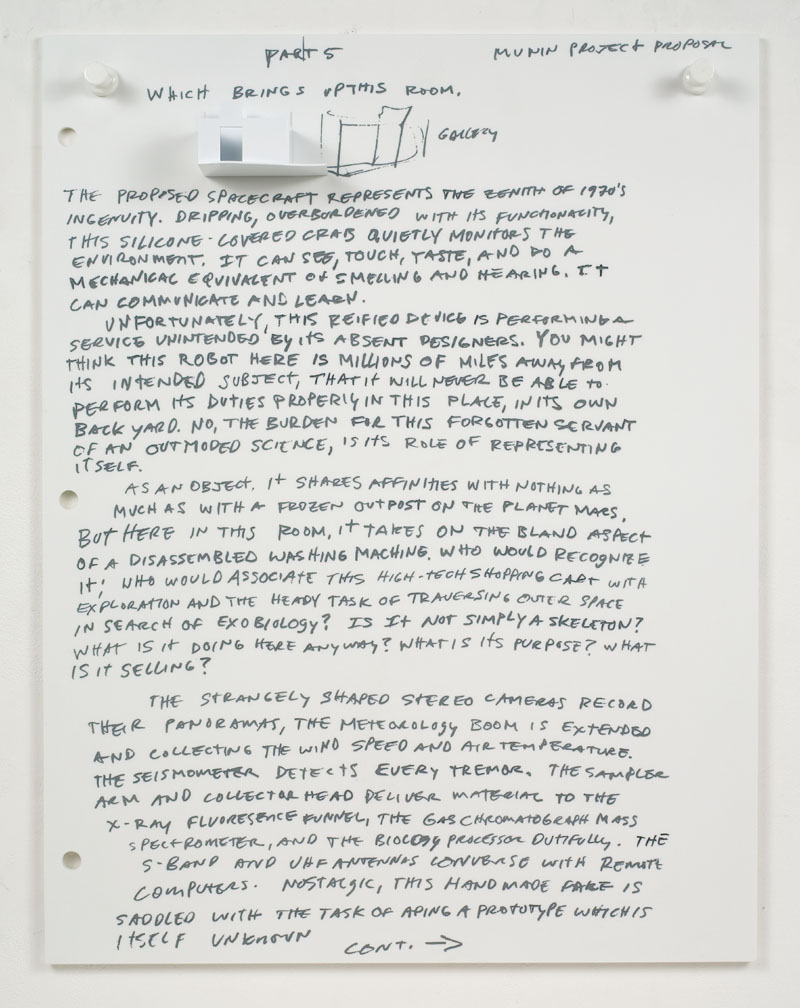 PART 5
MUNIN PROJECT PROPOSAL
WHICH BRINGS UP THIS ROOM.
GALLERY
THE PROPOSED SPACECRAFT REPRESENTS THE ZENITH OF 1970'S
INGENUITY. DRIPPING, OVERBURDENED WITH ITS FUNCTIONALITY,
THIS SILICONE-COVERED CRAB QUIETLY MONITORS THE
ENVIRONMENT. IT CAN SEE, TOUCH, TASTE, AND DO A
MECHANICAL EQUIVALENT OF SMELLING AND HEARING. IT
CAN COMMUNICATE AND LEARN.
UNFORTUNATELY, THIS REIFIED DEVICE IS PERFORMING A
SERVICE UNINTENDED BY ITS ABSENT DESIGNERS. YOU MIGHT
THINK THIS ROBOT HERE IS MILLIONS OF MILES AWAY FROM
ITS INTENDED SUBJECT, THAT IT WILL NEVER BE ABLE TO
PERFORM ITS DUTIES PROPERLY IN THIS PLACE, IN ITS OWN
BACK YARD. NO, THE BURDEN FOR THIS FORGOTTEN SERVANT
OF AN OUTMODED SCIENCE, IS ITS ROLE OF REPRESENTING
ITSELF.
AS AN OBJECT, IT SHARES AFFINITIES WITH NOTHING AS
MUCH AS WITH A FROZEN OUTPOST ON THE PLANET MARS,
BUT HERE IN THIS ROOM, IT TAKES ON THE BLAND ASPECT
OF A DISASSEMBLED WASHING MACHINE. WHO WOULD RECOGNIZE
IT; WHO WOULD ASSOCIATE THIS HIGH-TECH SHOPPING CART WITH
EXPLORATION AND THE HEADY TASK OF TRAVERSING OUTER SPACE
IN SEARCH OF EXOBIOLOGY? IS IT NOT SIMPLY A SKELETON?
WHAT IS IT DOING HERE ANYWAY? WHAT IS ITS PURPOSE? WHAT
IS IT SELLING?
THE STRANGELY SHAPED STEREO CAMERAS RECORD
THEIR PANORAMAS, THE METEOROLOGY BOOM IS EXTENDED
AND COLLECTING THE WIND SPEED AND AIR TEMPERATURE.
THE SEISMOMETER DETECTS EVERY TREMOR. THE SAMPLER
ARM AND COLLECTOR HEAD DELIVER MATERIAL TO THE
X-RAY FLUORESENCE FUNNEL, THE GAS CHROMATOGRAPH MASS
SPECTROMETER, AND THE BIOLOGY PROCESSOR DUTIFULLY. THE
S-BAND AND UHF ANTENNAS CONVERSE WITH REMOTE
COMPUTERS. NOSTALGIC, THIS HANDMADE FAKE IS
SADDLED WITH THE TASK OF APING A PROTOTYPE WHICH IS
ITSELF UNKNOWN
CONT. →